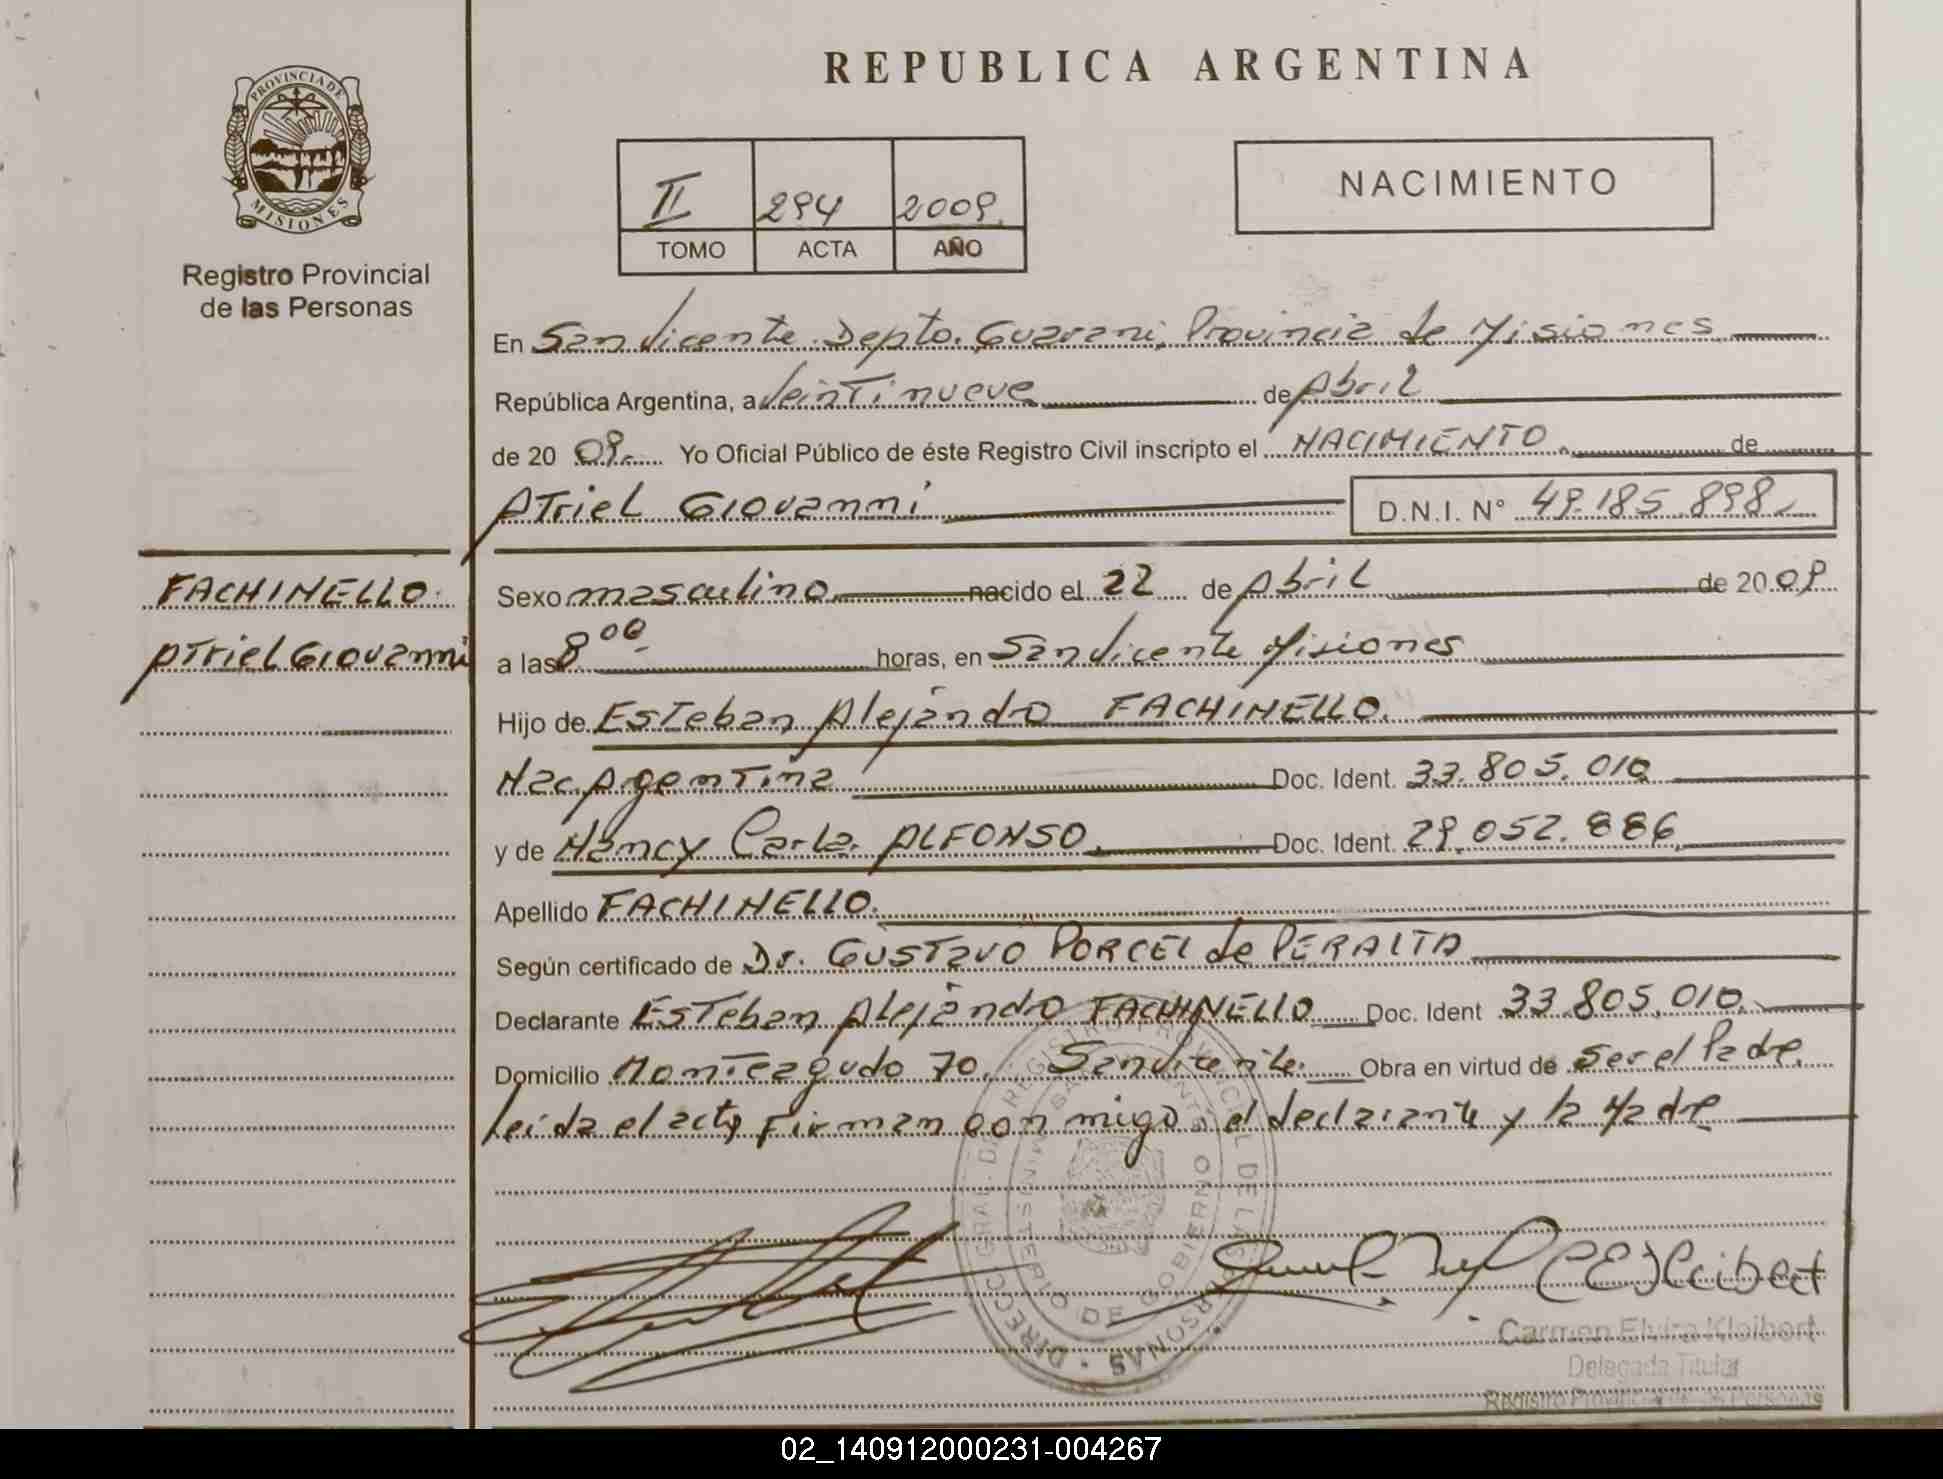 REPUBLICA ARGENTINA
PROVINCIA DE
MISIONES
Registro Provincial
de las Personas
II 294 2009.
TOMO ACTA AÑO
NACIMIENTO
En San Vicente. Depto. Guarani, Provincia de Misiones
República Argentina, a Veintinueve de Abril
de 20 09. Yo Oficial Público de éste Registro Civil inscripto el NACIMIENTO. de
ATriel Giovanni D.N.I. N° 49.185.898
FACHINELLO.
ATriel Giovanni
Sexo masculino nacido el 22 de Abril de 20 09
a las 8 00 horas, en San Vicente Misiones
Hijo de Esteban Alejandro FACHINELLO.
Nac. Argentina Doc. Ident. 33.805.010
y de Nancy Carla ALFONSO. Doc. Ident. 29.052.886.
Apellido FACHINELLO.
Según certificado de Dr. GUSTAVO PORCEL de PERALTA
Declarante Esteban Alejandro FACHINELLO Doc. Ident 33.805.010.
Domicilio Monteagudo 70. San Vicente. Obra en virtud de ser el Padre.
leida el acta Firman con migo el declarante y la Madre
DIRECC. GRAL. DE REGISTRO PROVINCIAL DE LAS PERSONAS
MINISTERIO DE GOBIERNO
Carmen Elvira Kleibert
Delegada Titular
Registro Provincial de las Personas
02_140912000231-004267